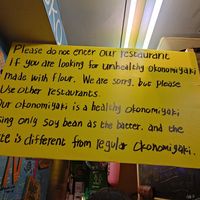 Please do not enter our restaurant
If you are looking for unhealthy okonomiyaki
made with flour. We are sorry, but please
use other restaurants.
Our okonomiyaki is a healthy okonomiyaki
sing only soy bean as the batter. and the
te is different from regular Okonomiyaki.